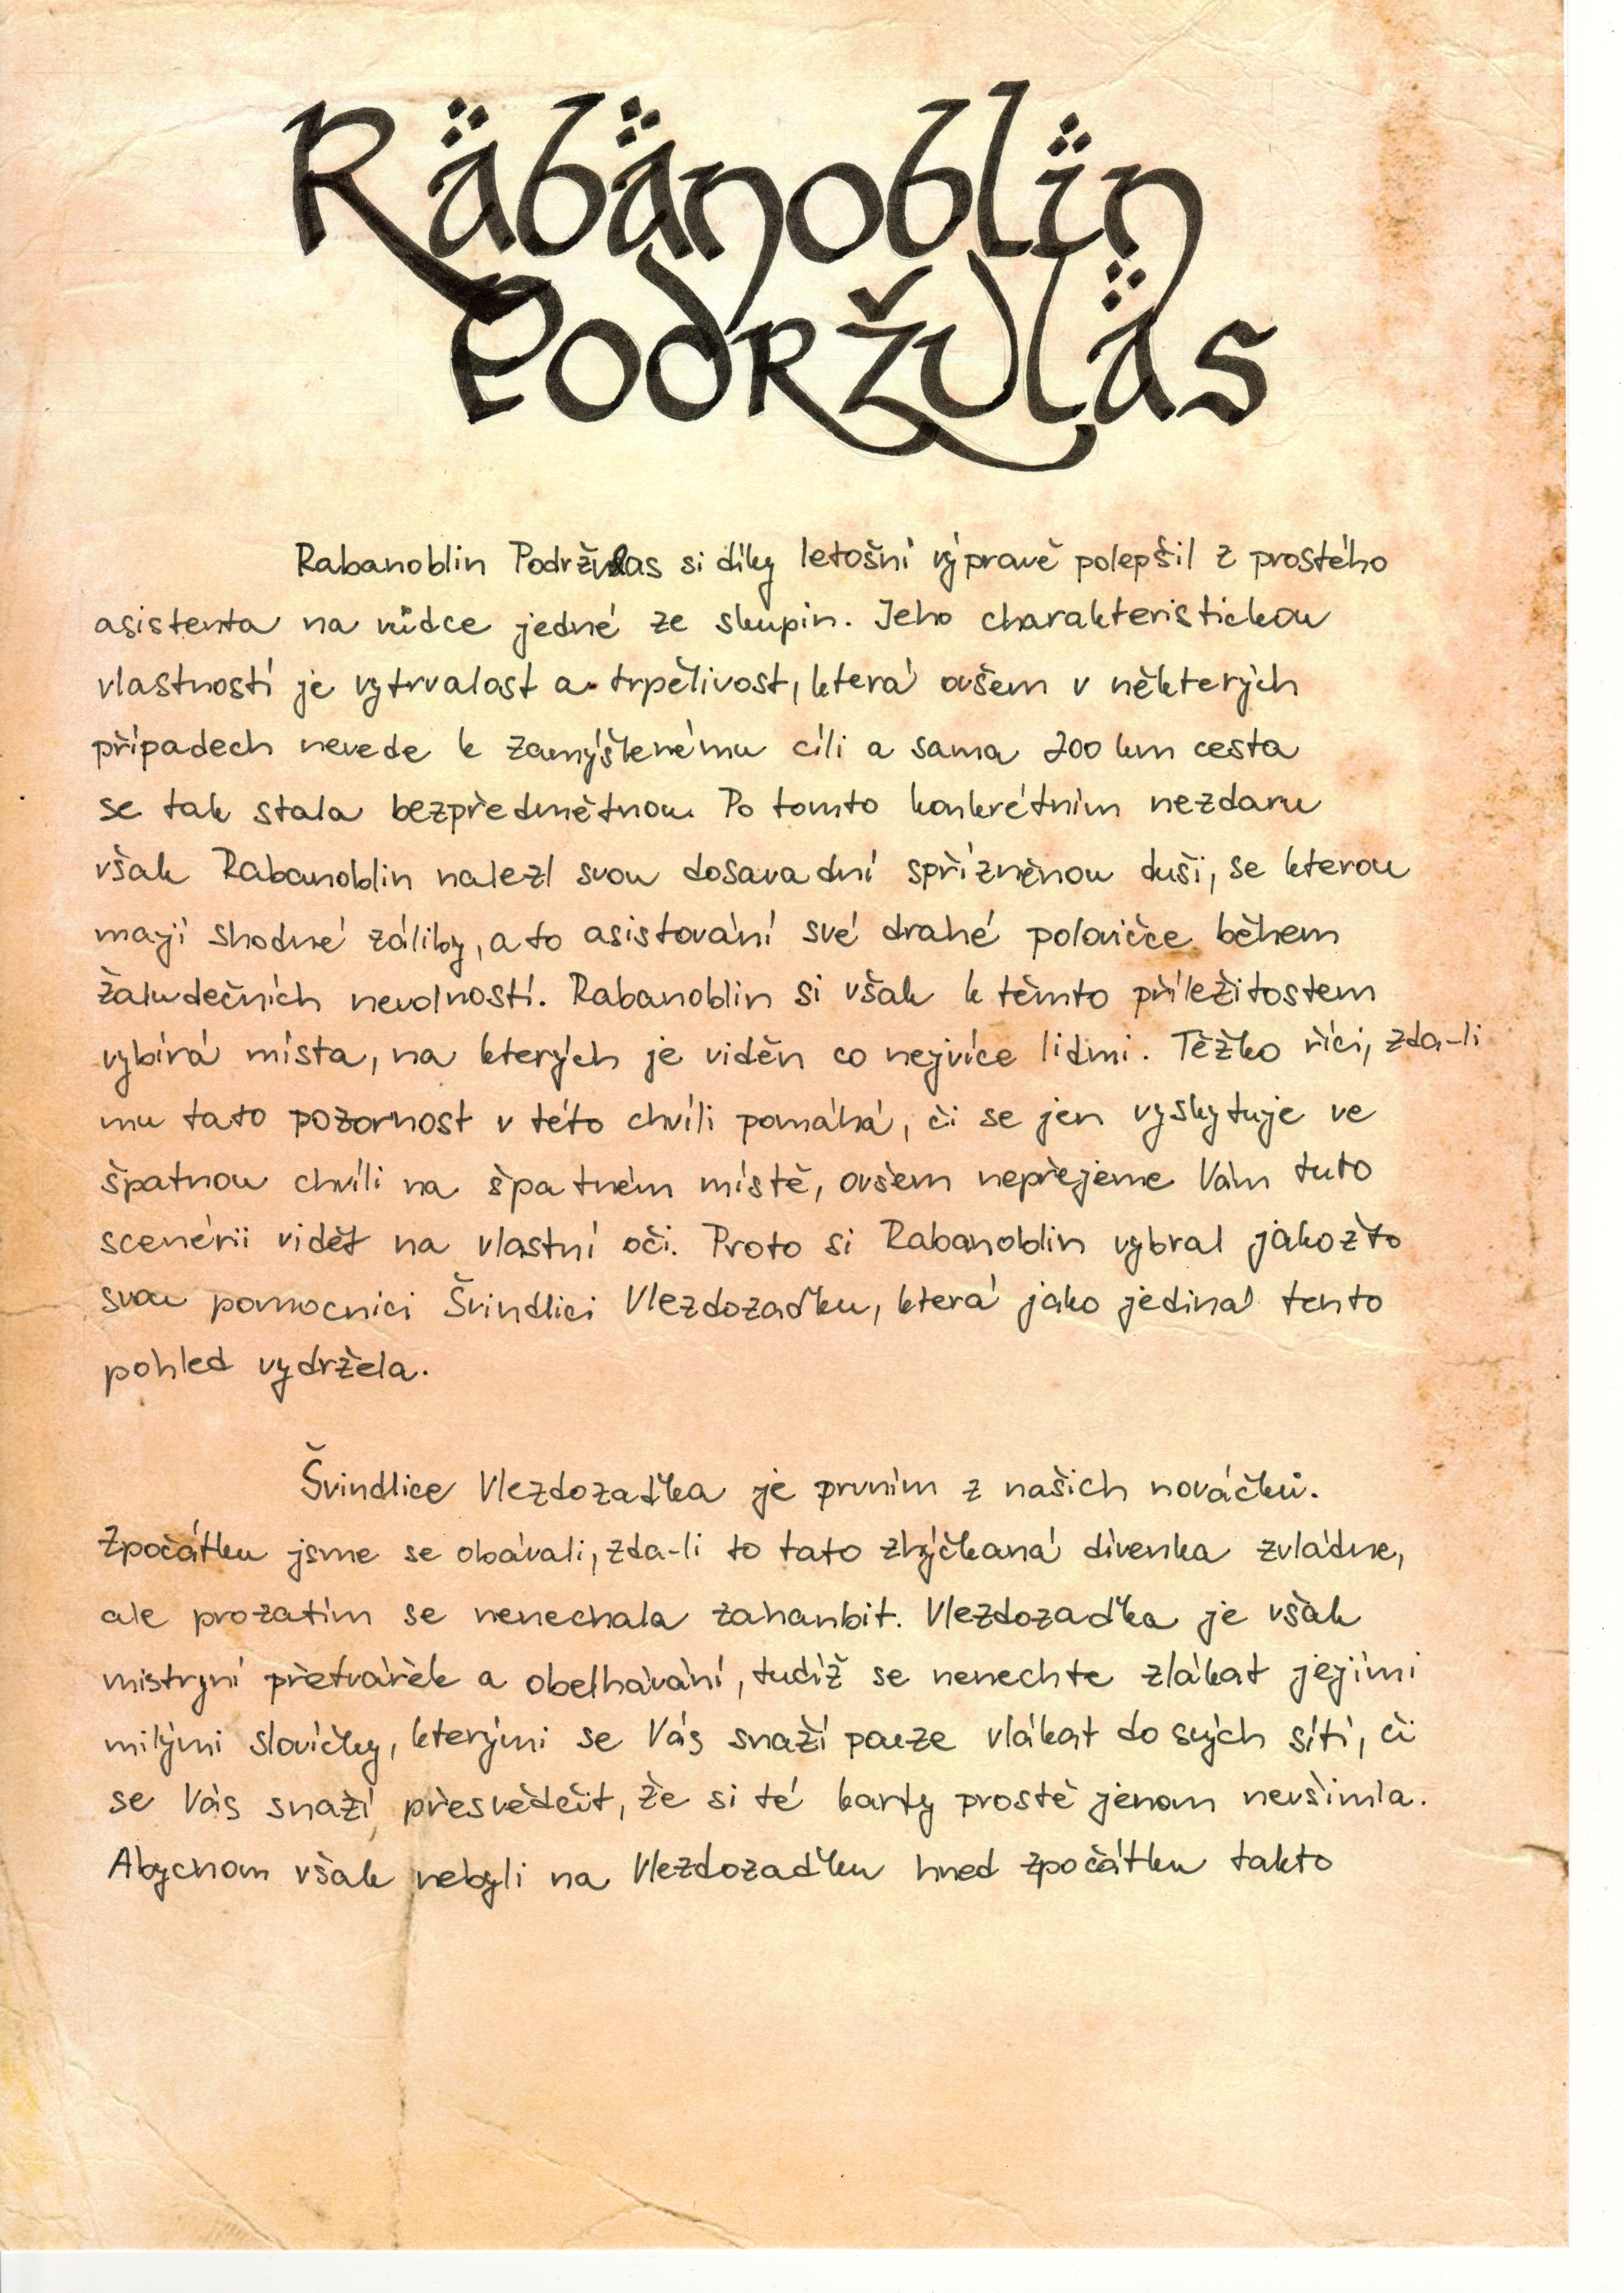 Räbänoblin
Podržuläs
Rabanoblin Podržulas si díky letošní výpravě polepšil z prostého
asistenta na vůdce jedné ze skupin. Jeho charakteristickou
vlastností je vytrvalost a trpělivost, která ovšem v některých
případech nevede k zamýšlenému cíli a sama 200 km cesta
se tak stala bezpředmětnou. Po tomto konkrétním nezdaru
však Rabanoblin nalezl svou dosavadní spřízněnou duši, se kterou
mají shodné záliby, a to asistování své drahé polovičce během
žaludečních nevolností. Rabanoblin si však k těmto příležitostem
vybírá místa, na kterých je viděn co nejvíce lidmi. Těžko říci, zda-li
mu tato pozornost v této chvíli pomáhá, či se jen vyskytuje ve
špatnou chvíli na špatném místě, ovšem nepřejeme Vám tuto
scenérii vidět na vlastní oči. Proto si Rabanoblin vybral jakožto
svou pomocnici Švindlici Vlezdozaďku, která jako jediná tento
pohled vydržela.
Švindlice Vlezdozaďka je prvním z našich nováčků.
Zpočátku jsme se obávali, zda-li to tato zhýčkaná dívenka zvládne,
ale prozatím se nenechala zahanbit. Vlezdozaďka je však
mistryní přetvářek a obelhávání, tudíž se nenechte zlákat jejími
milými slovíčky, kterými se Vás snaží pouze vlákat do svých sítí, či
se Vás snaží přesvědčit, že si té karty prostě jenom nevšimla.
Abychom však nebyli na Vlezdozaďku hned zpočátku takto